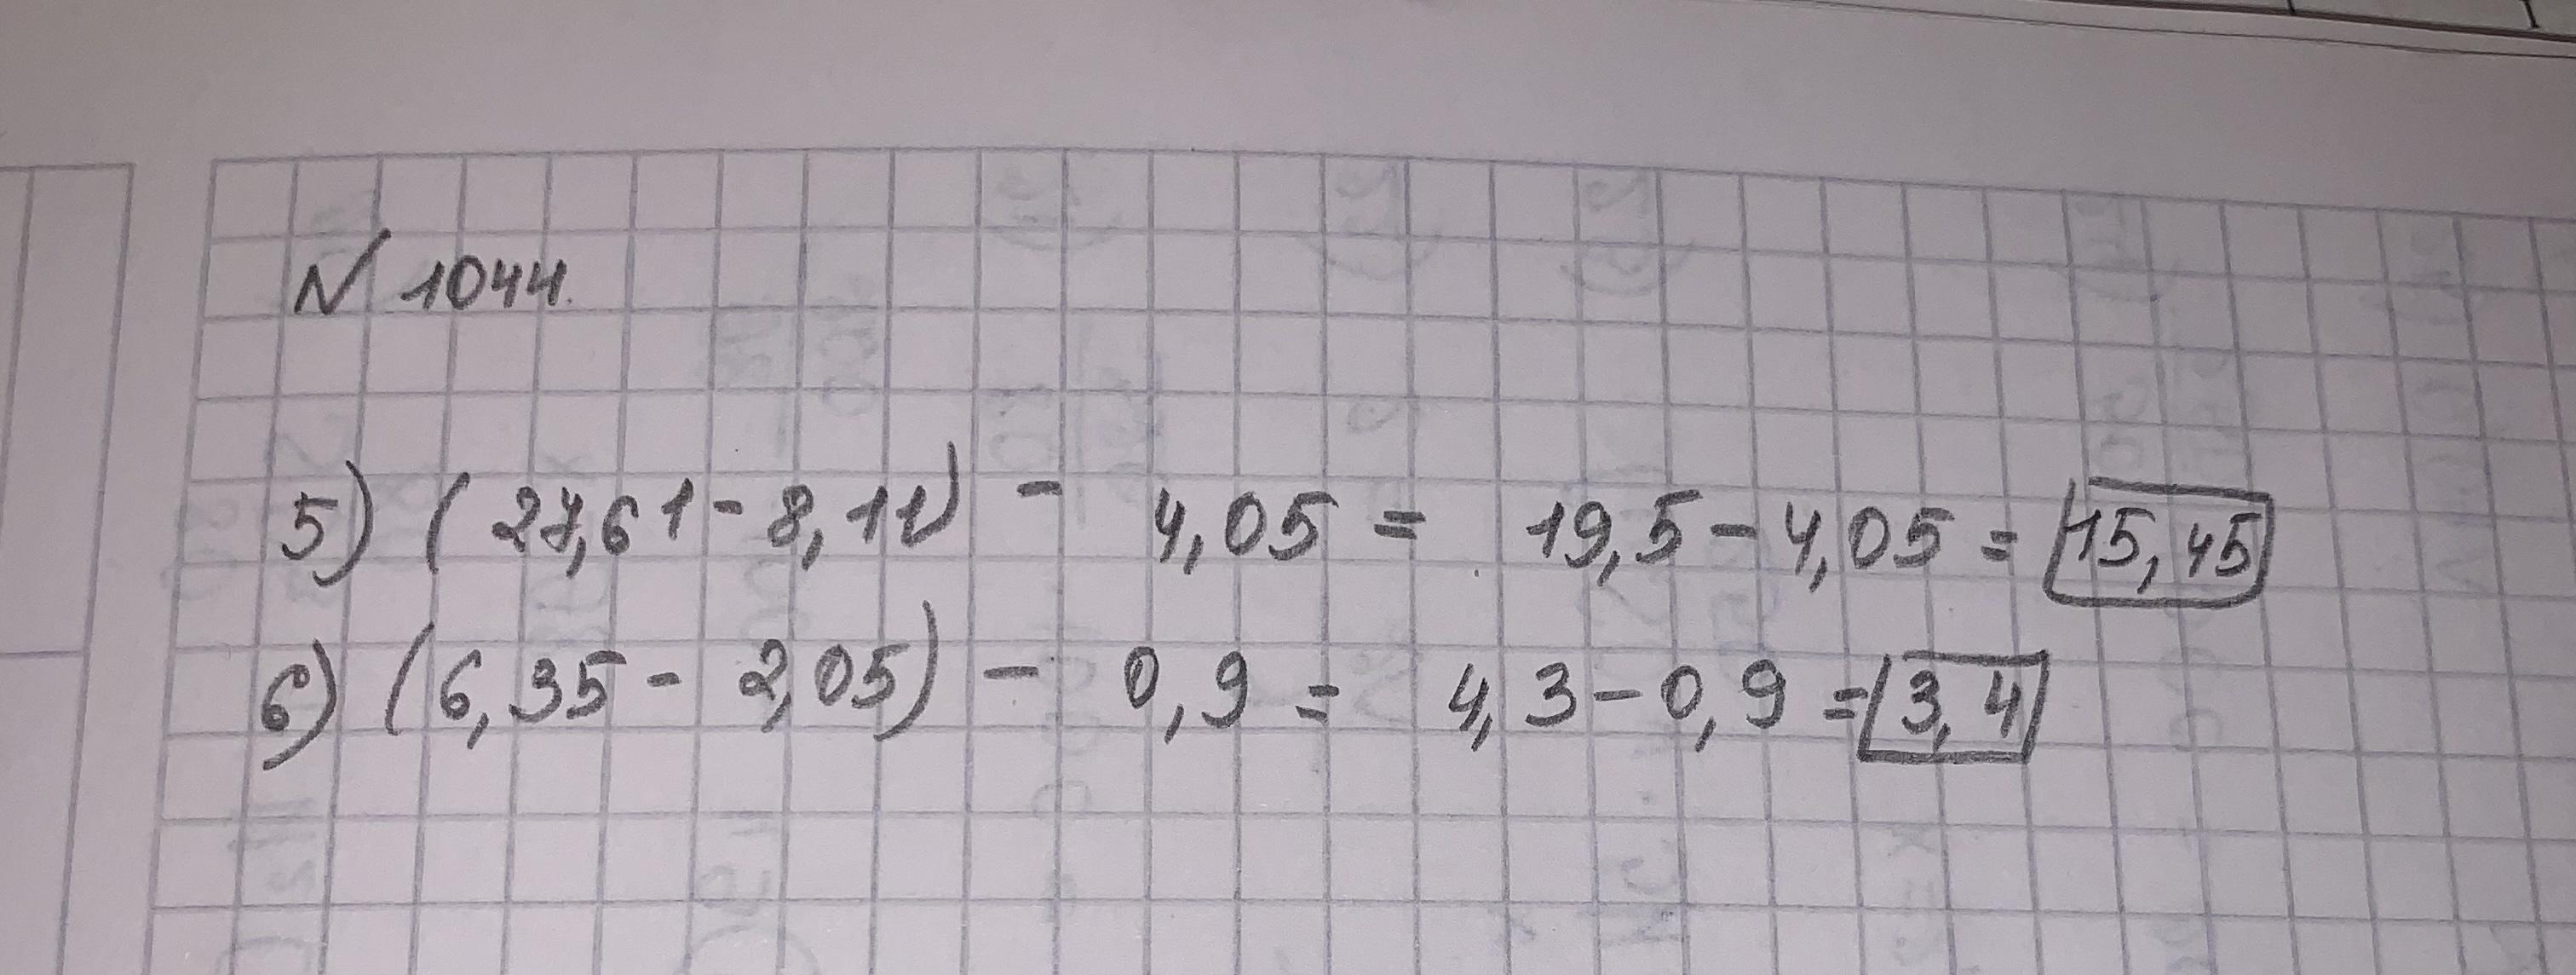 N 1044.
5) (27,61 - 8,11) - 4,05 = 19,5 - 4,05 = 15,45
6) (6,35 - 2,05) - 0,9 = 4,3 - 0,9 = 3,4